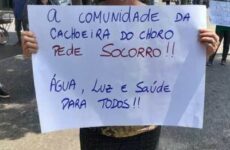 A COMUNIDADE DA
CACHOEIRA DO CHORO
PEDE SOCORRO!!
ÁGUA, LUZ E SAÚDE
PARA TODOS!!